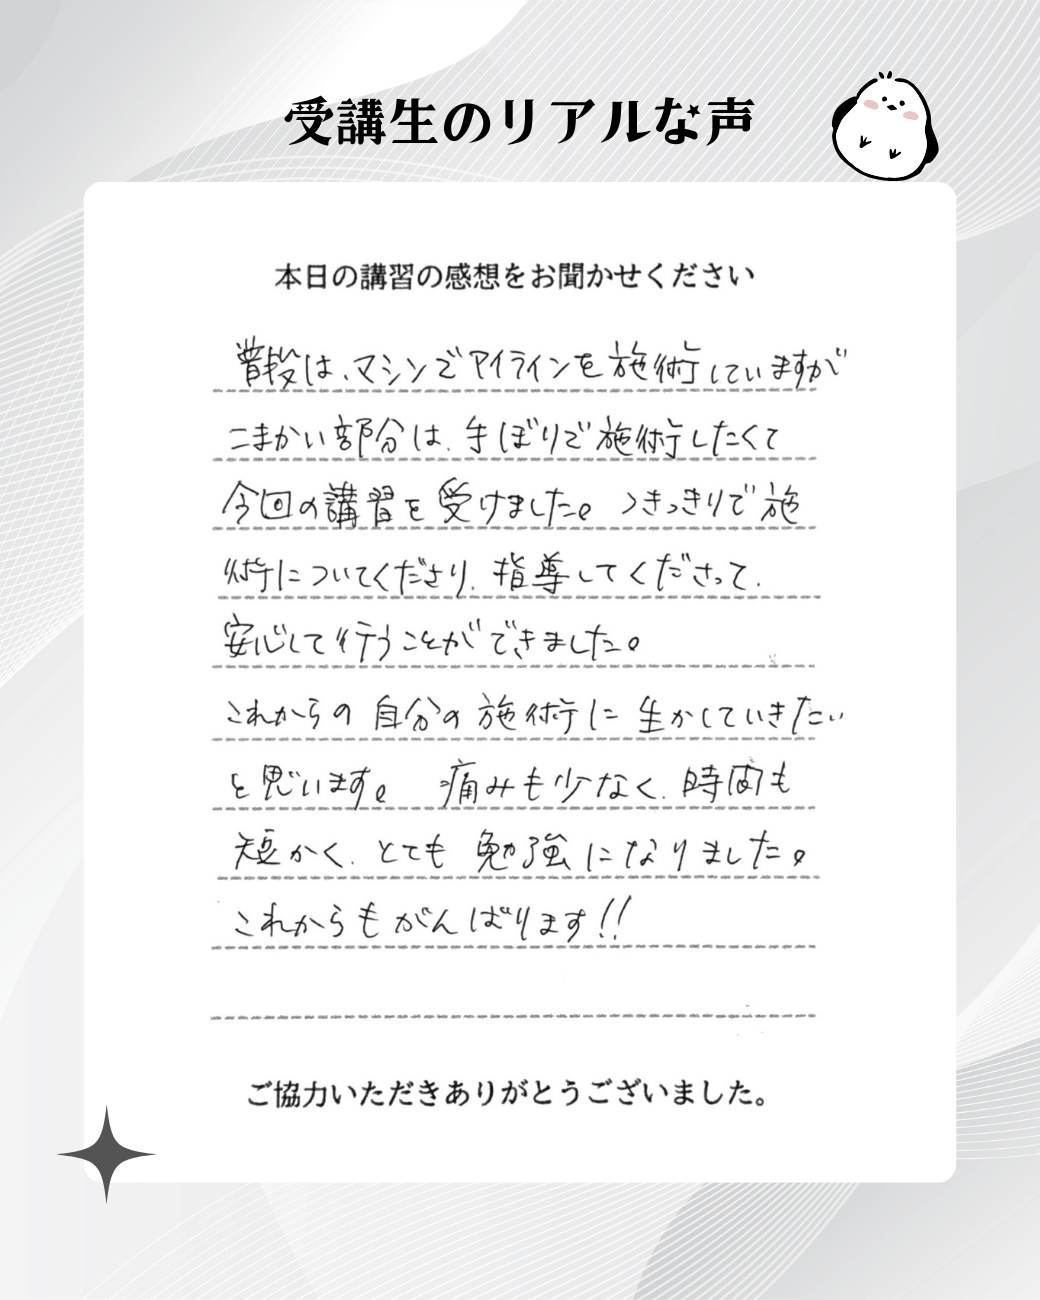 受講生のリアルな声
本日の講習の感想をお聞かせください
普段は、マシンでアイラインを施術していますが
こまかい部分は、手ぼりで施術したくて
今回の講習を受けました。つきっきりで施
術についてくださり、指導してくださって、
安心して行うことができました。
これからの自分の施術に生かしていきたい
と思います。 痛みも少なく、時間も
短かく、とても勉強になりました。
これからもがんばります!!
ご協力いただきありがとうございました。